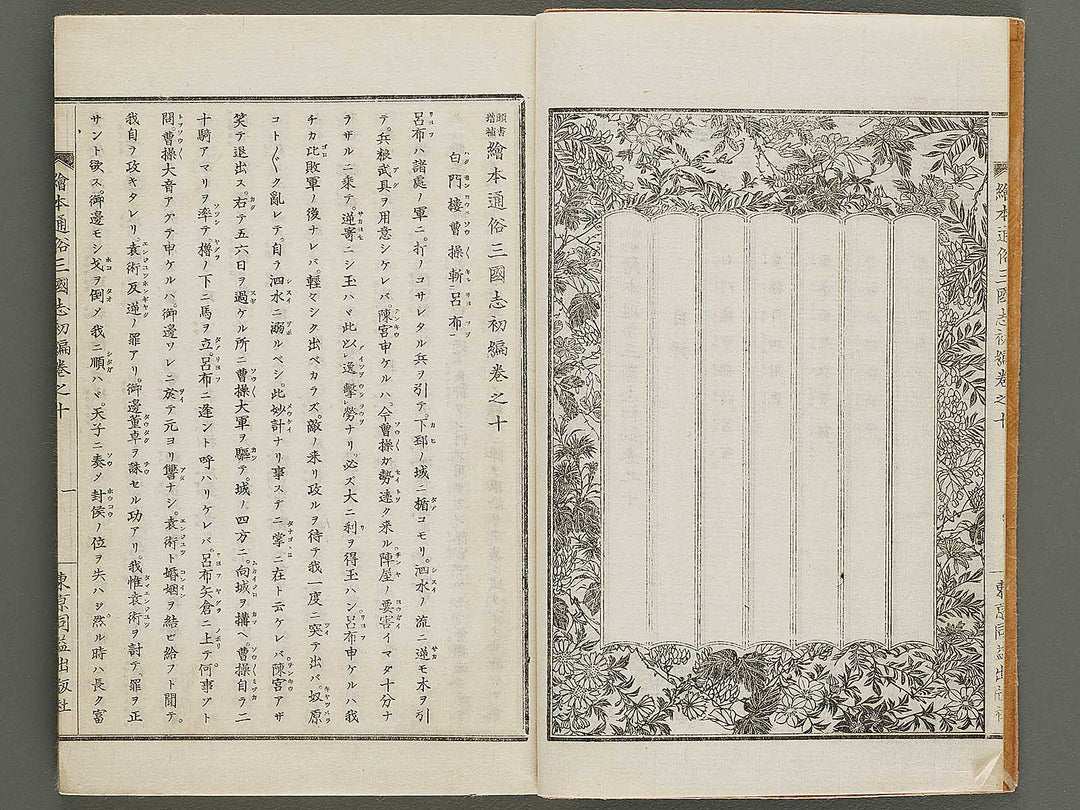 繪本通俗三國志初編卷之十
一
東京同益出版社
頭書
增補
繪本通俗三國志初編卷之十
白門樓曹操斬呂布
呂布ハ諸處ノ軍ニ。打ノコサレタル兵ヲ引テ。下邳ノ城ニ楯コモリ。泗水ノ流ニ逆モ木ヲ引
テ。兵粮武具ヲ用意シケレバ。陳宮申ケルハ。今曹操ガ勢遠ク来ル陣屋ノ要害イマタ十分ナ
ラザルニ乘テ。逆寄ニシ玉ハヾ此以逸擊勞ナリ。必ズ大ニ利ヲ得玉ハン呂布申ケルハ我
チカ比敗軍ノ後ナレバ。輕々シク出ベカラズ。敵ノ来リ攻ルヲ待テ我一度ニ突テ出バ奴原
コト〲ク亂レテ。自ラ泗水ニ溺ルベシ。此妙計ナリ事ステニ掌ニ在ト云ケレバ陳宮アザ
笑テ退出ス。右テ五六日ヲ過ケル所ニ曹操大軍ヲ驅テ。城ノ四方ニ。向城ヲ搆ヘ曹操自ラ二
十騎アマリヲ率テ櫓ノ下ニ馬ヲ立。呂布ニ逢ント呼ハリケレバ。呂布矢倉ニ上テ。何事ゾト
問曹操大音アゲテ申ケルハ。御邊ワレニ於テ元ヨリ讐ナシ。袁術ト婚姻ヲ結ビ給フト聞テ。
我自ヲ攻キタレリ袁術反逆ノ罪アリ。御邊董卓ヲ誅セル功アリ。我惟袁術ヲ討テ。罪ヲ正
サント欲ス。御邊モシ戈ヲ倒メ我ニ順ハヾ。天子ニ奏メ封侯ノ位ヲ失ハジ。然ル時ハ長ク富
繪本通俗三國志初編卷之十
一
東京同益出版社